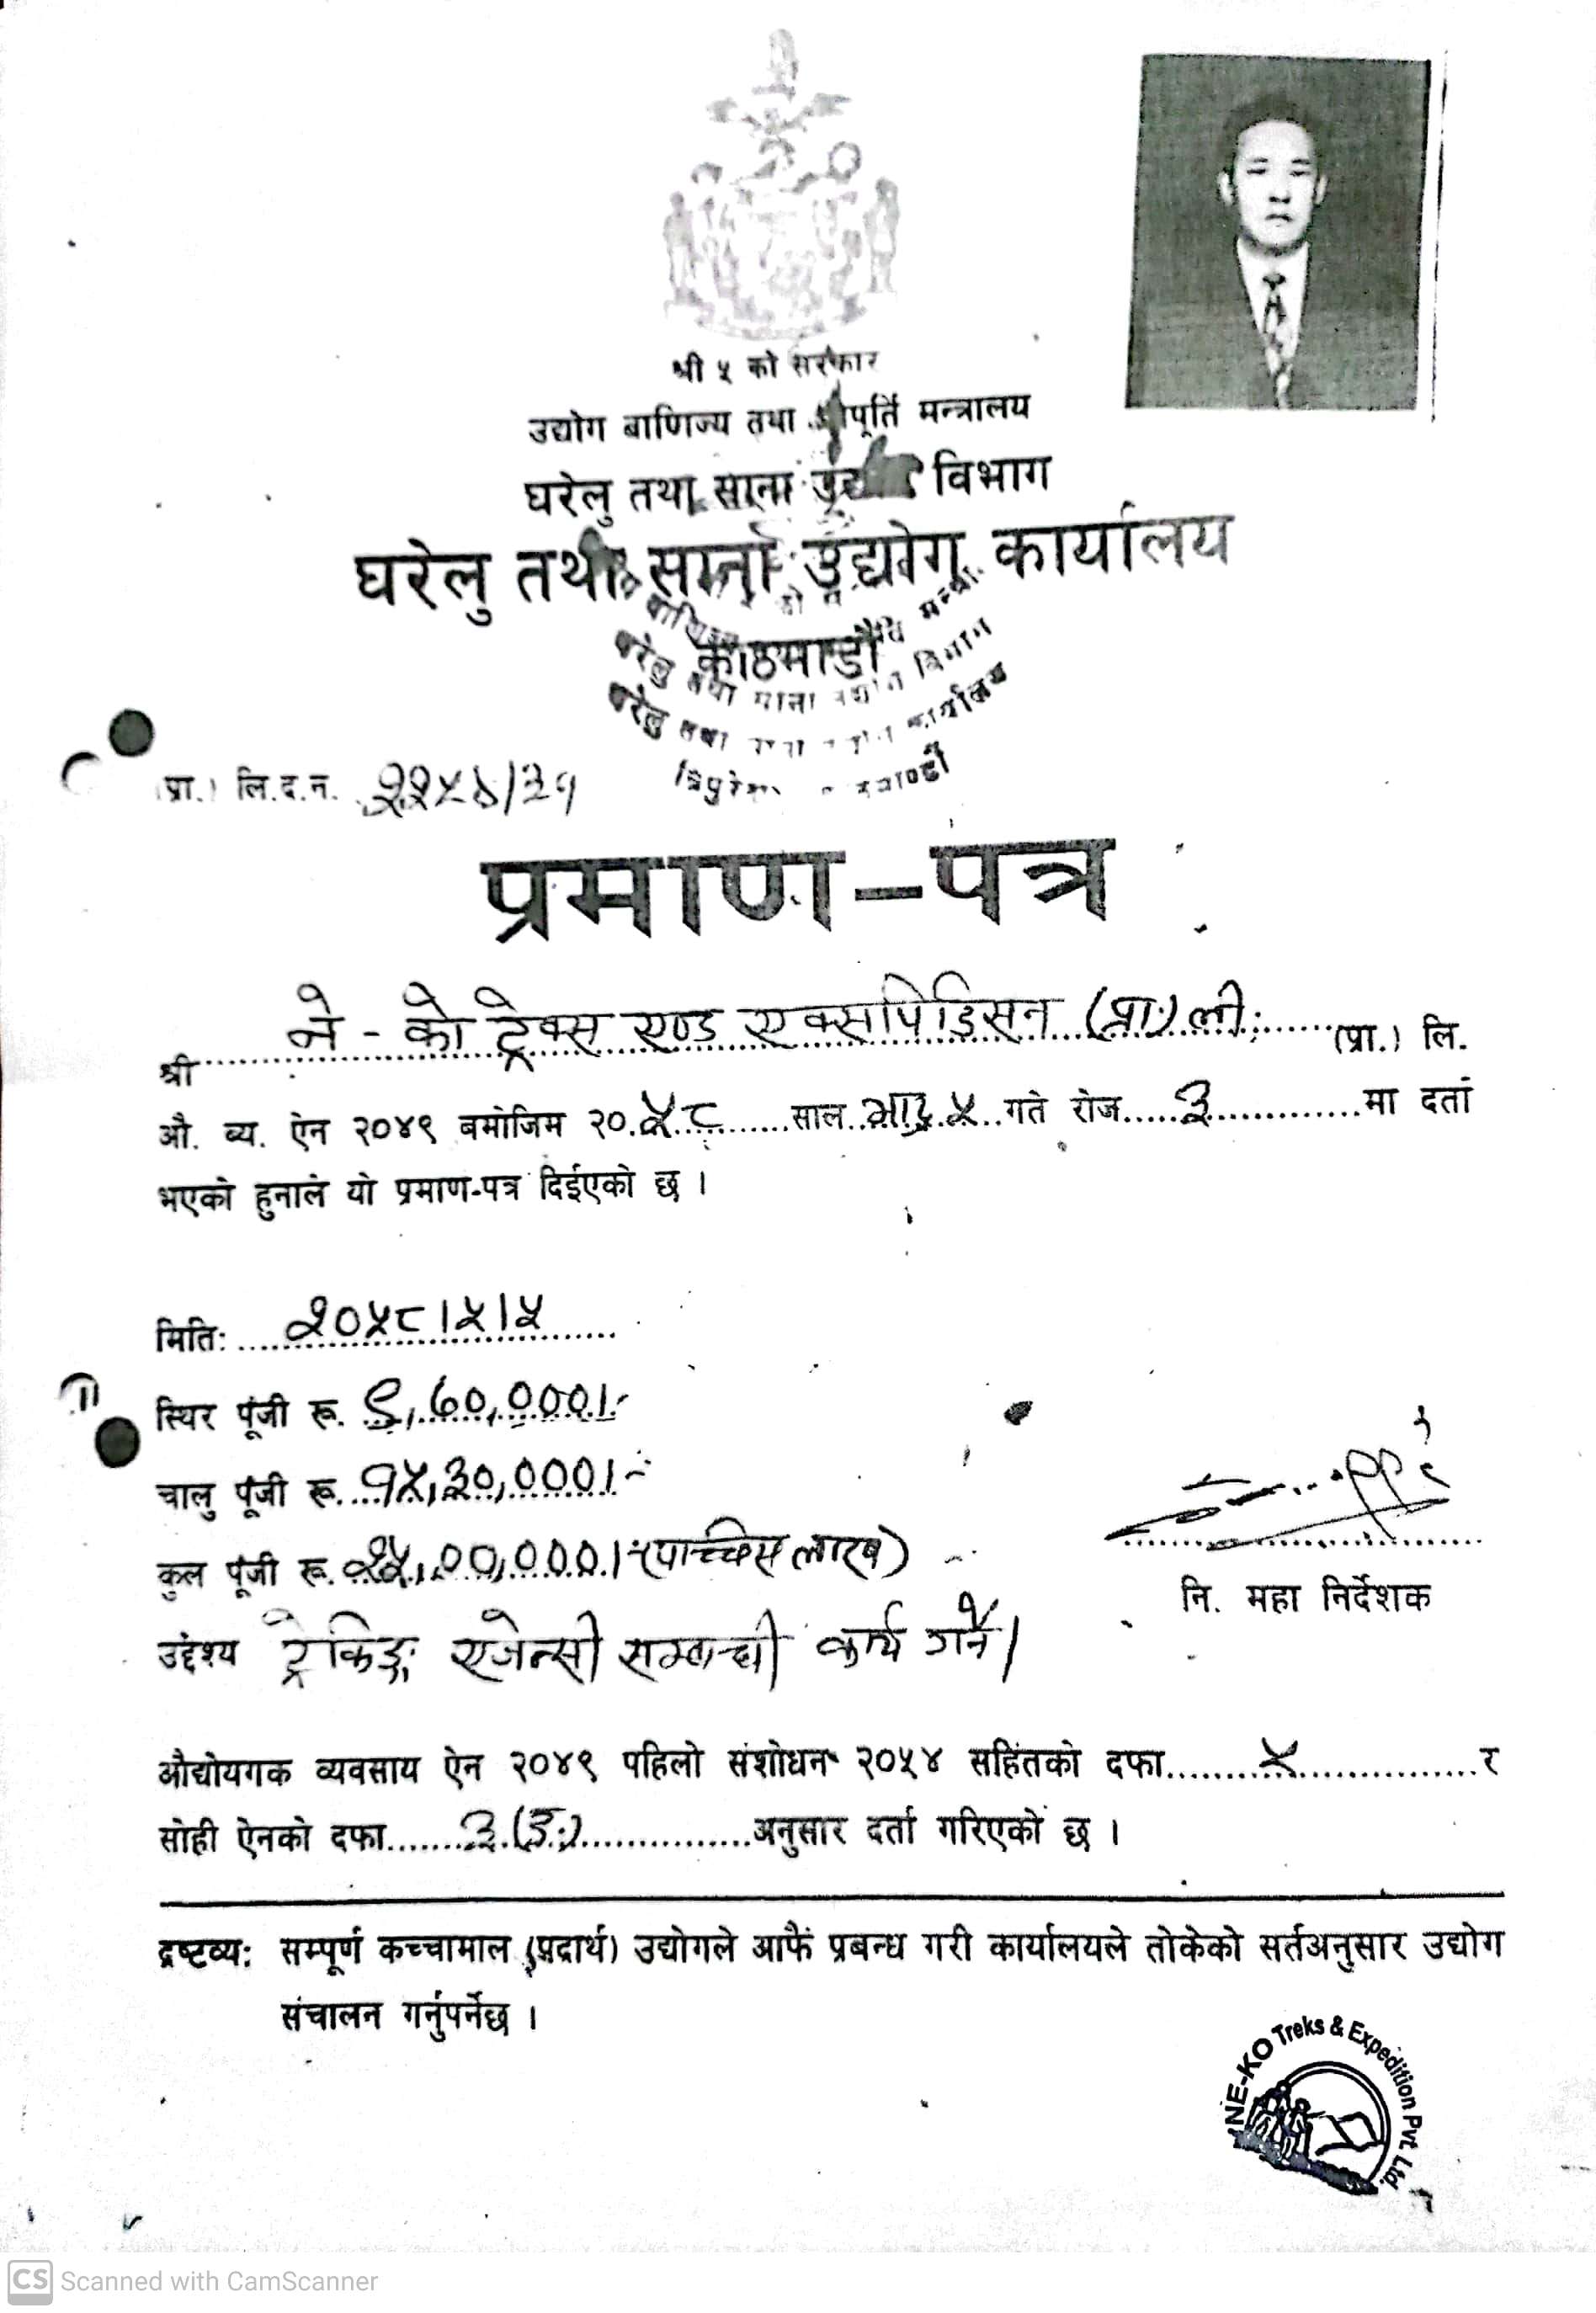 श्री ५ को सरकार
उद्योग बाणिज्य तथा आपूर्ति मन्त्रालय
घरेलु तथा साना उद्योग विभाग
घरेलु तथा साना उद्योग कार्यालय
काठमाडौं
घरेलु तथा साना उद्योग विभाग
घरेलु तथा कार्यालय
(प्रा.) लि.द.न. २२५४/३१
प्रमाण-पत्र
श्री ने - को ट्रेक्स एण्ड एक्सपिडिसन (प्रा.) ली. (प्रा.) लि.
औ. ब्य. ऐन २०४९ बमोजिम २०५८ साल भाद्र ५ गते रोज ३ मा दर्ता
भएको हुनाले यो प्रमाण-पत्र दिईएको छ ।
मितिः २०५८।५।५
स्थिर पूंजी रू. ९,७०,०००।-
चालु पूंजी रू. १५,३०,०००।-
कुल पूंजी रू. २५,००,०००।- (पच्चिस लाख)
नि. महा निर्देशक
उद्देश्य ट्रेकिङ्ग एजेन्सी सम्बन्धी कार्य गर्ने।
औद्योयगक व्यवसाय ऐन २०४९ पहिलो संशोधन २०५४ सहितको दफा ५ र
सोही ऐनको दफा ३ (ङ) अनुसार दर्ता गरिएको छ ।
द्रष्टव्यः सम्पूर्ण कच्चामाल (प्रदार्थ) उद्योगले आफैं प्रबन्ध गरी कार्यालयले तोकेको सर्तअनुसार उद्योग
संचालन गर्नुपर्नेछ ।
NE-KO Treks & Expedition Pvt. Ltd.
CS Scanned with CamScanner